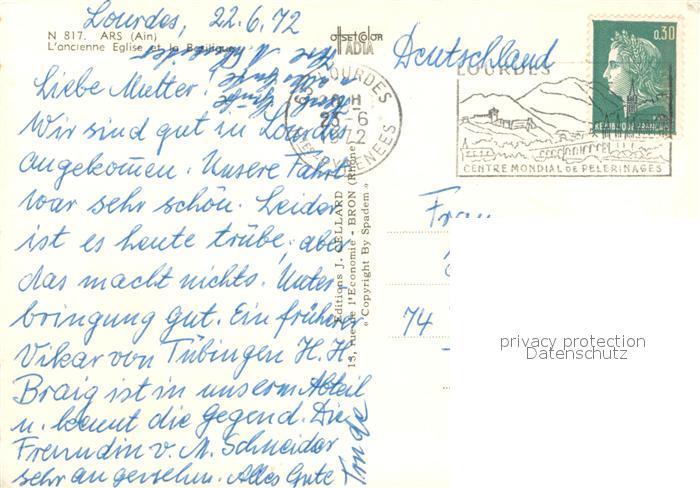 Lourdes, 22.6.72
N 817. ARS (Ain)
L'ancienne Eglise et la Basilique
OFSETCOLOR
ADIA
Liebe Mutter!
Wir sind gut in Lourdes
angekommen. Unsere Fahrt
war sehr schön. Leider
ist es heute trübe, aber
das macht nichts. Unter-
bringung gut. Ein früherer
Vikar von Tübingen H. H.
Braig ist in unserm Abteil
u. kennt die Gegend. Die
Freundin v. M. Schneider
sehr angesehen. Alles Gute
Editions J. CELLARD
15, rue de l'Economie - BRON (Rhône)
" Copyright By Spadem "
LOURDES
23-6
1972
PYRENEES
Deutschland
LOURDES
CENTRE MONDIAL DE PELERINAGES
0,30
REPUBLIQUE FRANCAISE
Frau
74
privacy protection
Datenschutz